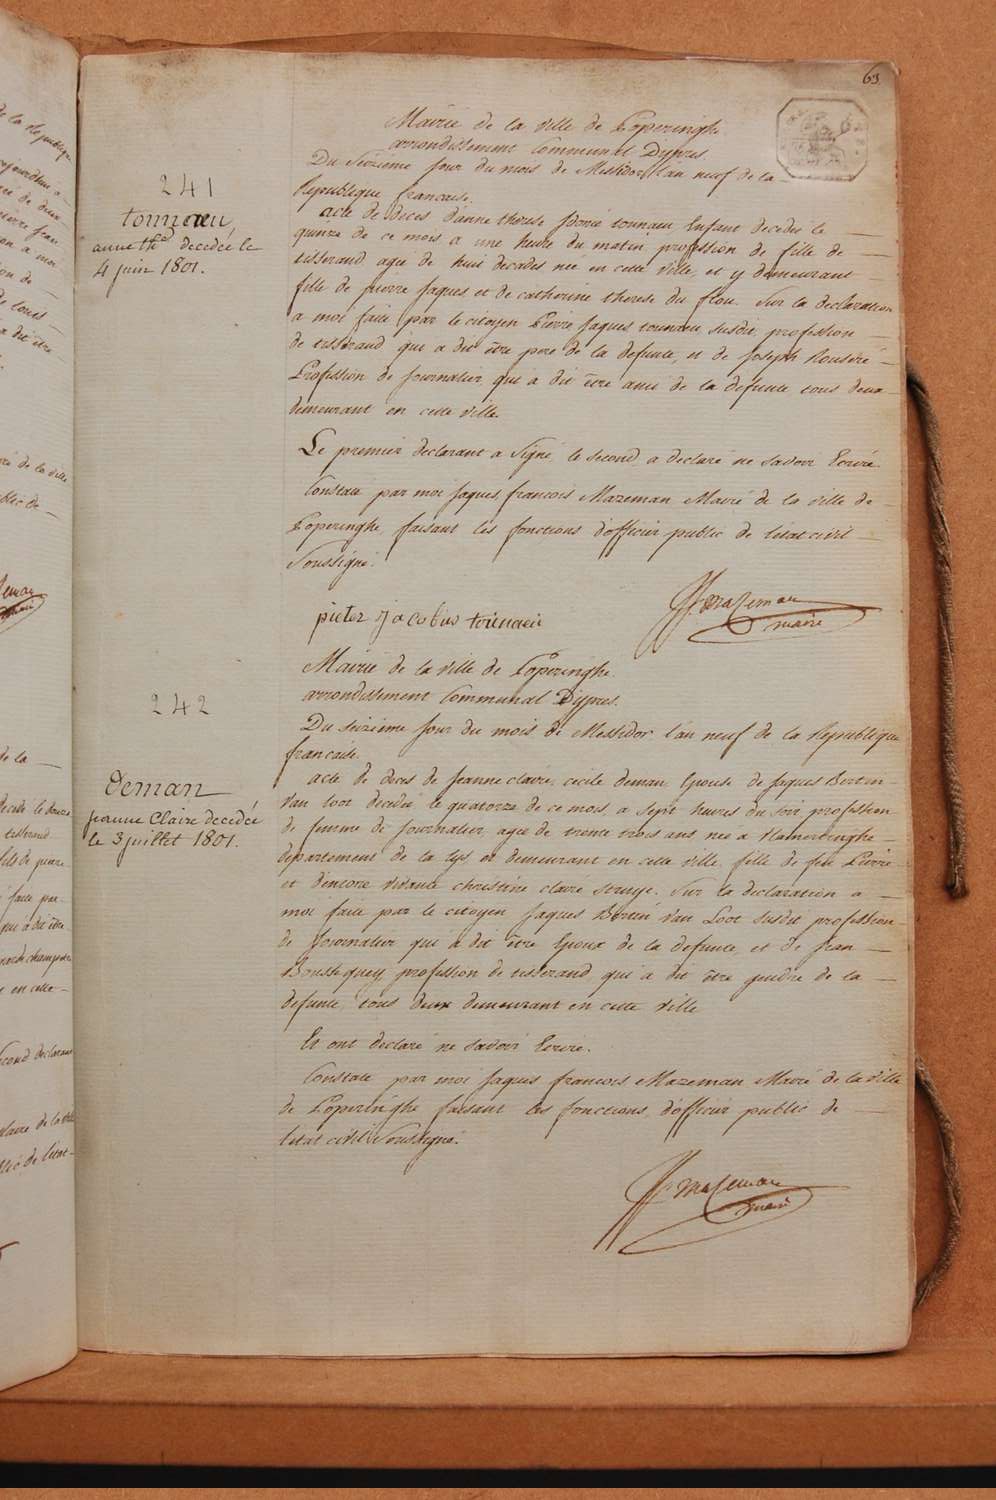 63
Mairie de la Ville de Poperinghe
arrondissement Communal Dypres.
Du Seizieme Jour du mois de Messidor l'an neuf de la
Republique francaise.
241
tonnaeu
anne thé decedée le
4 juin 1801.
acte de deces d'anne therese tonnaeu Enfant decedée le
quinze de ce mois, a une heure du matin, profession de fille de
tisserand agee de huit decades née en cette Ville, et y demeurant
fille de pierre Jaques et de catherine therese du flou. Sur la declaration
a moi faite par le citoyen Pierre Jaques tonnaeu susdit profession
de tisserand qui a dit être pere de la defunte, et de Joseph
Profession de Journalier, qui a dit être ami de la defunte, tous deux
demeurant en cette ville.
Le premier declarant a Signé, le second a declaré ne savoir Ecrire.
Constaté par moi Jaques francois Mazeman Mairé de la ville de
Poperinghe, faisant les fonctions d'officier public de l'etat civil
Soussigné.
pieter Jacobus tonnaeu
Mazeman
maire
Mairie de la Ville de Poperinghe.
arrondissement Communal Dypres.
242
Du seizieme Jour du mois de Messidor, l'an neuf de la Republique
francaise.
Deman
Jeanne Claire decedée
le 3 juillet 1801.
acte de deces de Jeanne claire, cecile deman, Epouse de Jaques Bertin
Van Loot decedée le quatorze de ce mois, a Sept heures du soir profession
de femme de Journalier, agee de trente trois ans, née a Vlamertinghe
departement de la Lys, et demeurant en cette ville, fille de feu Pierre
et d'encore vivante christine claire Struye. Sur la declaration a
moi faite par le citoyen Jaques Bertin Van Loot susdit profession
de Journalier qui a dit être Epoux de la defunte, et de fran
Profession de tisserand, qui a dit être gendre de la
defunte, tous deux demeurant en cette ville
Et ont declaré ne savoir Ecrire.
Constaté par moi Jaques francois Mazeman Mairé de la ville
de Poperinghe faisant les fonctions d'officier public de
l'etat civil Soussigné.
Mazeman
maire